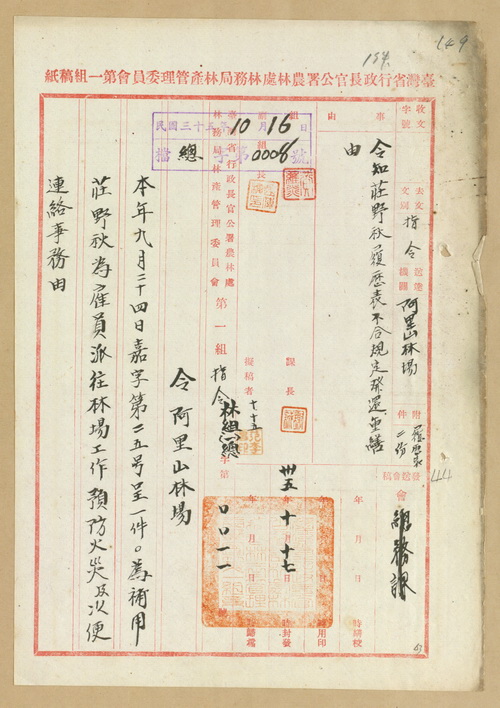 149
194
臺灣省行政長官公署農林處林務局林產管理委員會第一組稿紙
收文 字號
去文 文別 指令
送達機關 阿里山林場
附件 履歷表二份
44
會 組務課
事由
令知莊野秋履歷表不合規定發還重繕由
年 月 日 時繕校
年 月 日 時用印
卅五年十月十七日 時封發
年 月 日 時歸檔
組長
課長
擬稿者
七十五
民國三十五年10月16日
檔 總字第0008號
臺灣省行政長官公署農林處林務局林產管理委員會 第一組 指令
林組(總)字第〇〇一一號
令阿里山林場
本年九月二十四日嘉字第二五号呈一件。為補用
莊野秋為雇員派往林場工作預防火災及以便
連絡事務由